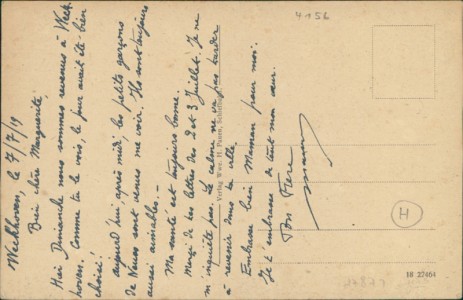 Weckhoven, le 7/7/19
Bien chère Marguerite,
Hier Dimanche nous sommes revenus à Weck
hoven. Comme tu le vois, le jour avait été bien
choisi!
aujourd'hui, après midi, les petits garçons
de Neuss sont venus me voir. Ils sont toujours
aussi aimables.-
Ma santé est toujours bonne.
Merci de tes lettres des 2 et 3 Juillet. Je ne
m'inquiète pas. Le calme ne va pas tarder
à revenir dans la ville.
Embrasse bien Maman pour moi.
Je t'embrasse de tout mon cœur.
Ton Frère
Verlag Wwe. H.
4156
H
18 27464